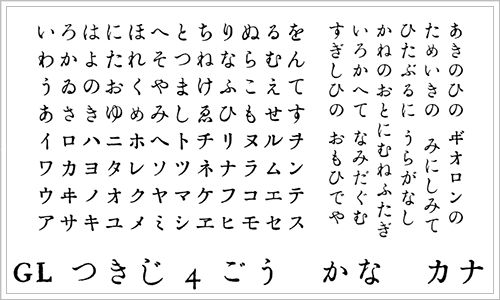 いろはにほへとちりぬるを
わかよたれそつねならむん
うゐのおくやまけふこえて
あさきゆめみしゑひもせす
イロハニホヘトチリヌルヲ
ワカヨタレソツネナラムン
ウヰノオクヤマケフコエテ
アサキユメミシヱヒモセス
あきのひの　ヸオロンの
ためいきの　みにしみて
ひたぶるに　うらがなし
かねのおとにむねふたぎ
いろかへて　なみだぐむ
すぎしひの　おもひでや
GL つきじ 4 ごう　かな　カナ